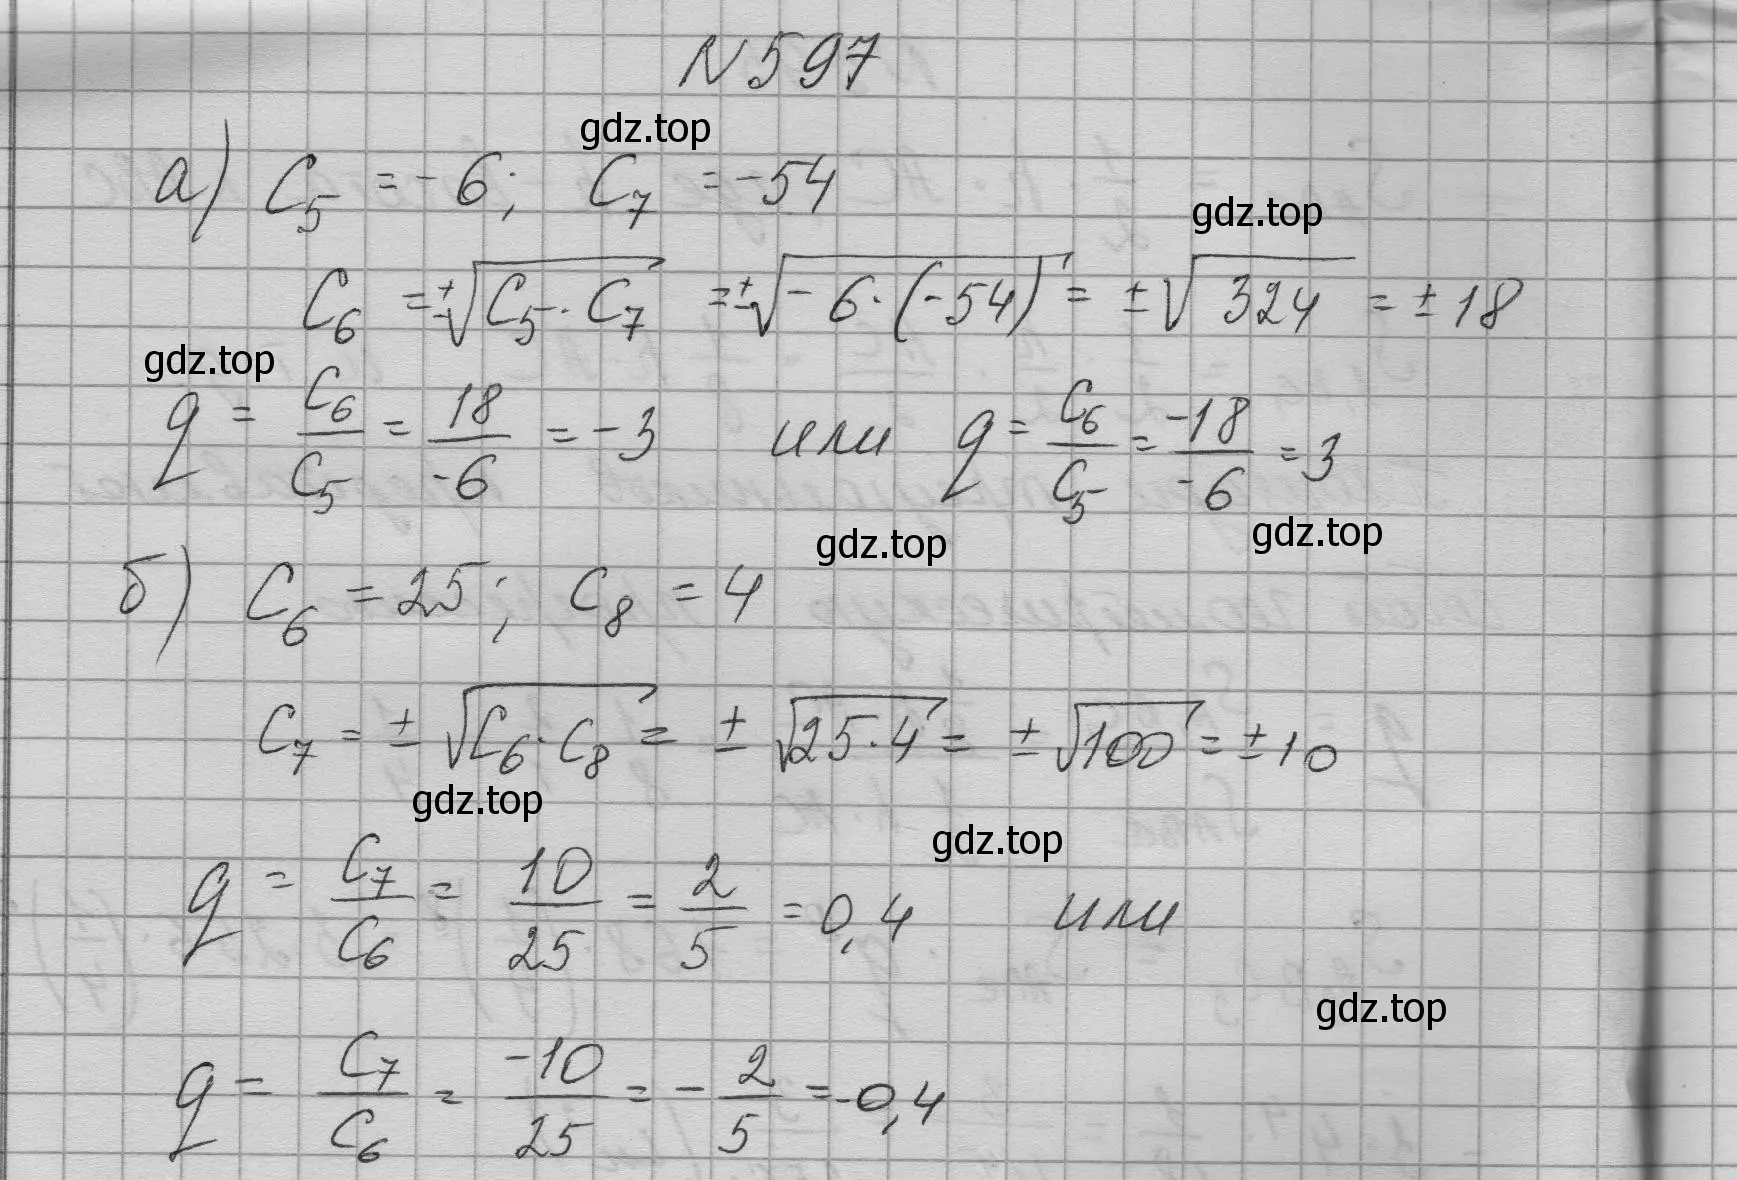 N 597
gdz.top
а) C₅ = -6; C₇ = -54
gdz.top
C₆ = ±√(C₅ · C₇) = ±√(-6 · (-54)) = ±√324 = ±18
gdz.top
q = C₆/C₅ = 18/-6 = -3 или q = C₆/C₅ = -18/-6 = 3
gdz.top
gdz.top
б) C₆ = 25; C₈ = 4
C₇ = ±√(C₆ · C₈) = ±√(25 · 4) = ±√100 = ±10
gdz.top
gdz.top
q = C₇/C₆ = 10/25 = 2/5 = 0,4 или
gdz.top
q = C₇/C₆ = -10/25 = -2/5 = -0,4